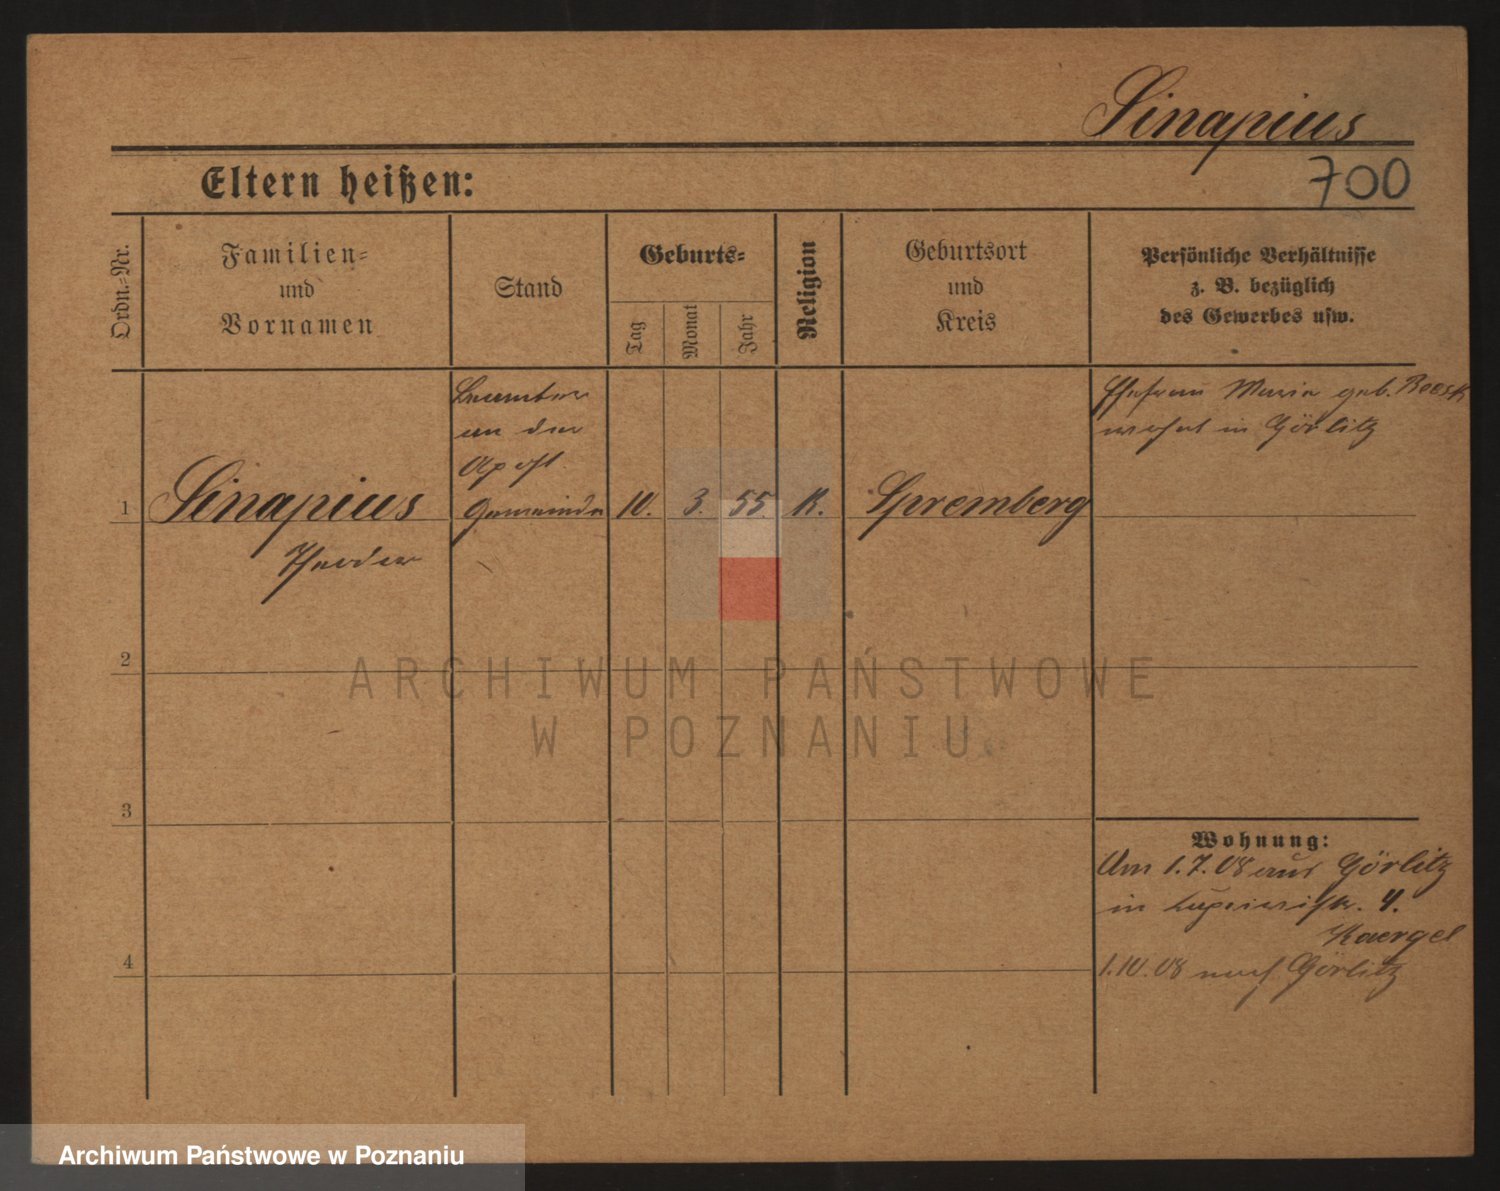 Sinapius
700
Eltern heißen:
Ordn.-Nr.
Familien=
und
Vornamen
Stand
Geburts=
Tag
Monat
Jahr
Religion
Geburtsort
und
Kreis
Persönliche Verhältnisse
z. B. bezüglich
des Gewerbes usw.
Beamter
an der
Apost.
Gemeinde
1
Sinapius
Theodor
10. 3. 55
K.
Spremberg
Ehefrau Maria geb.
wohnt in Görlitz
2
3
4
Wohnung:
Am 1.7.08 aus Görlitz
in 4.
Kaergel
1.10.08 nach Görlitz
ARCHIWUM PAŃSTWOWE
W POZNANIU
Archiwum Państwowe w Poznaniu